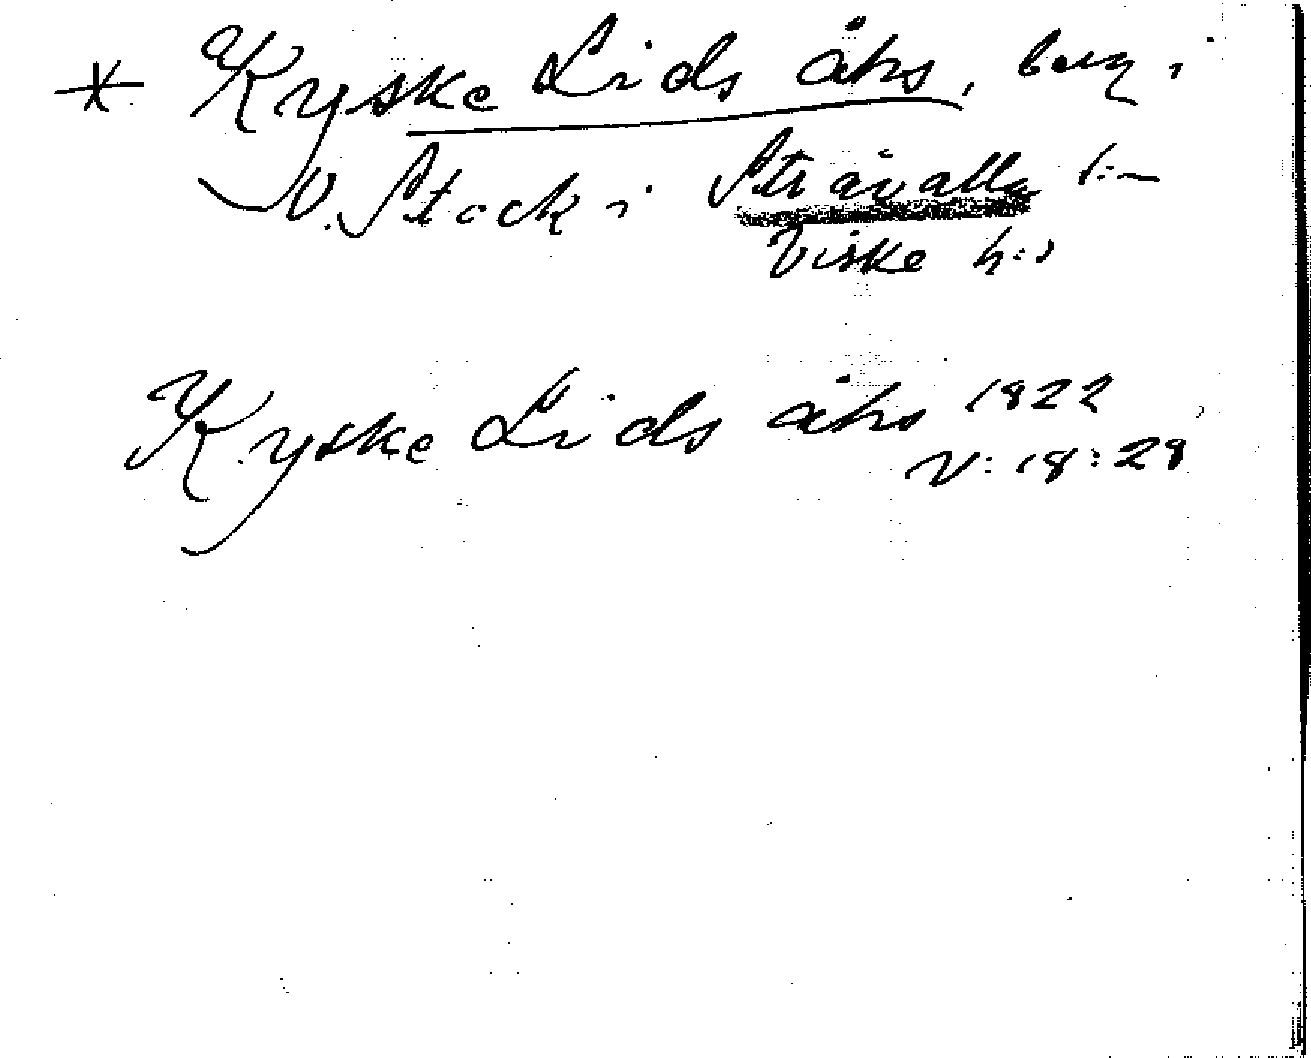 * Kyske Lids åhs, berg i
V. Stock i Stråvalla sn
Viske hd
Kyske Lids åhs 1822
V: 18: 28